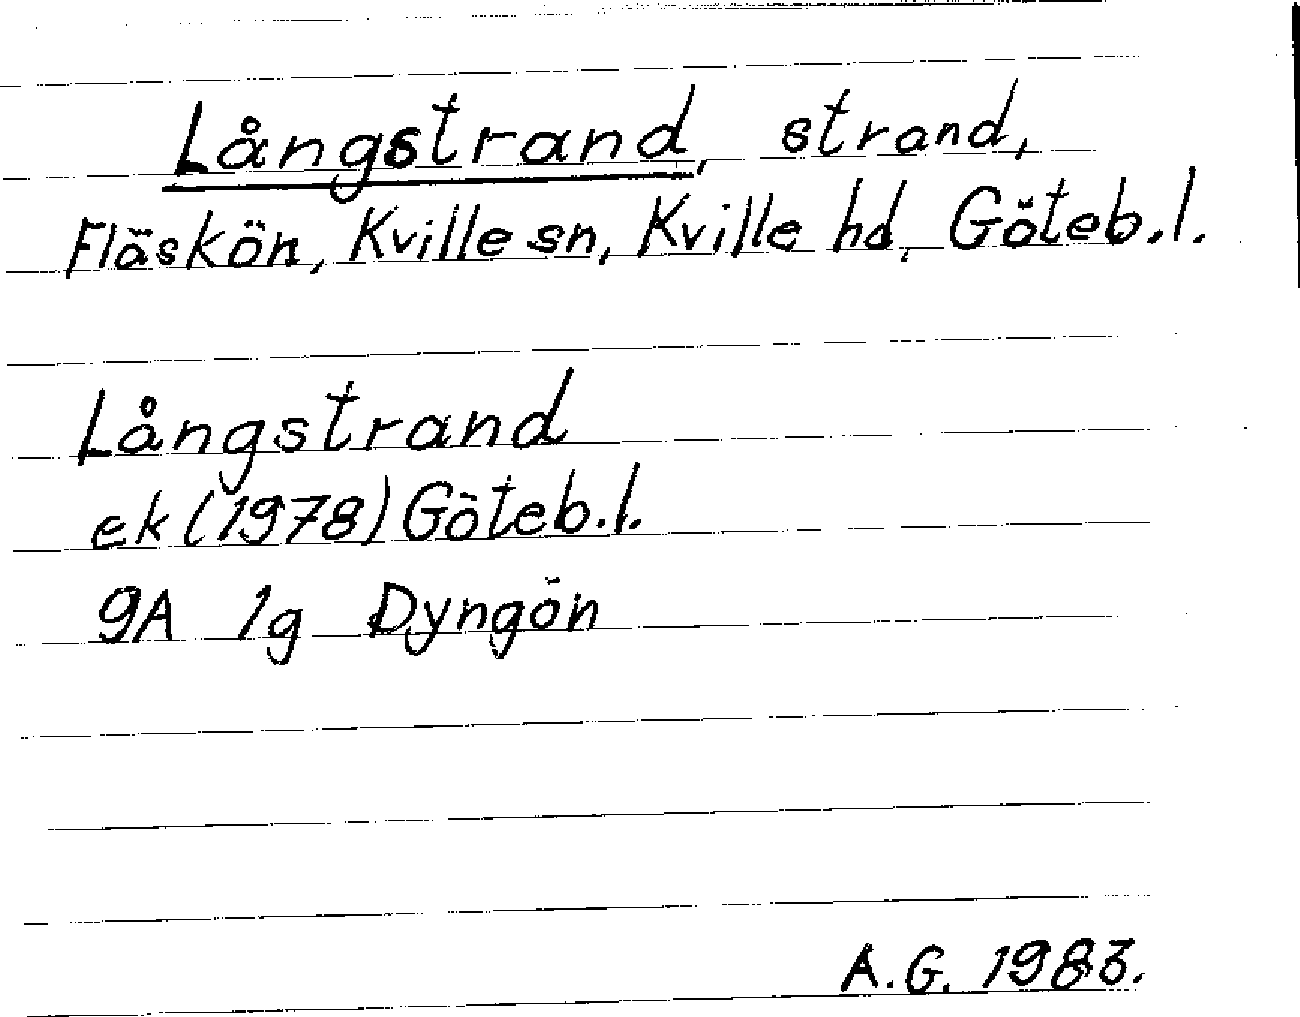 Långstrand, strand,
Fläskön, Kville sn, Kville hd, Göteb.l.
Långstrand
ek (1978) Göteb.l.
9A 1g Dyngön
A.G. 1983.